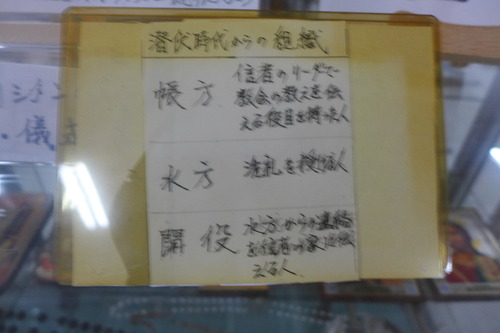 潜伏時代からの組織
帳方
信者のリーダで
教会の教えを伝
える役目を持った人
水方
洗礼を授ける人
聞役
水方からの連絡
を信者の家に伝
える人